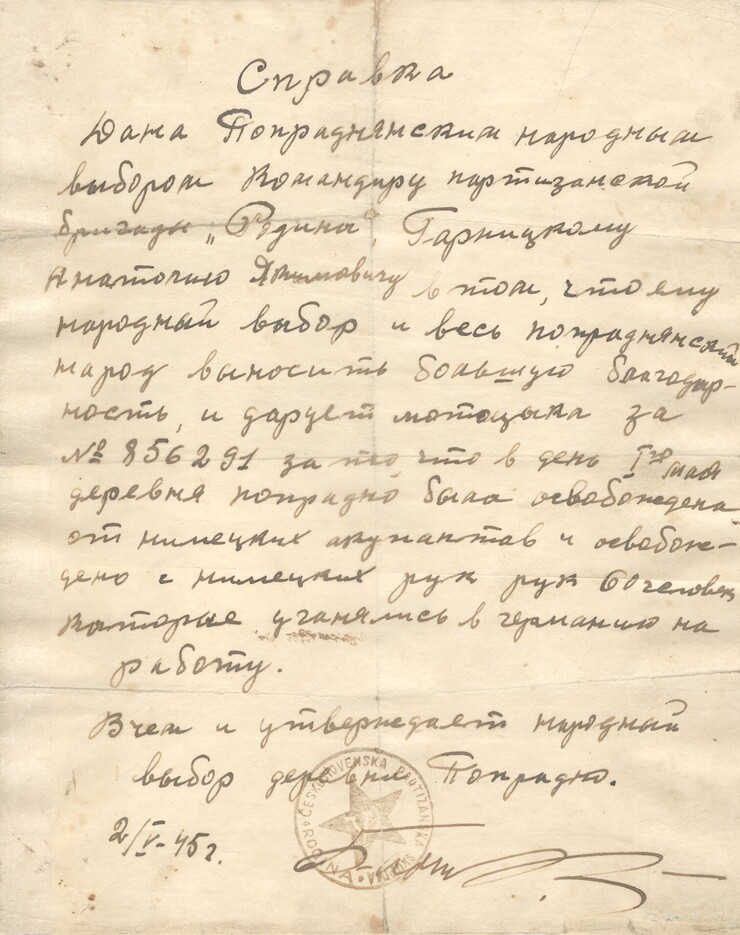 Справка
Дана Попраднянским народным
выбором Командиру партизанской
бригады „Родина“, Гарницкому
Анатолию Якимовичу в том, что ему
народный выбор и весь попраднянский
народ выносить большую благодар-
ность, и дарует мотоцыкл за
№ 856291 за то, что в день Iго мая
деревня попрадно была освобождена
от нимецких акупантав и освобож-
дено с нимецких рук рук 60 человек
каторые угонялись в германию на
работу.
Вчем и утверждает народный
выбор деревни Попрадно.
2/V-45 г.
ČESKOSLOVENSKA PARTIZÁNSKA
RODINA